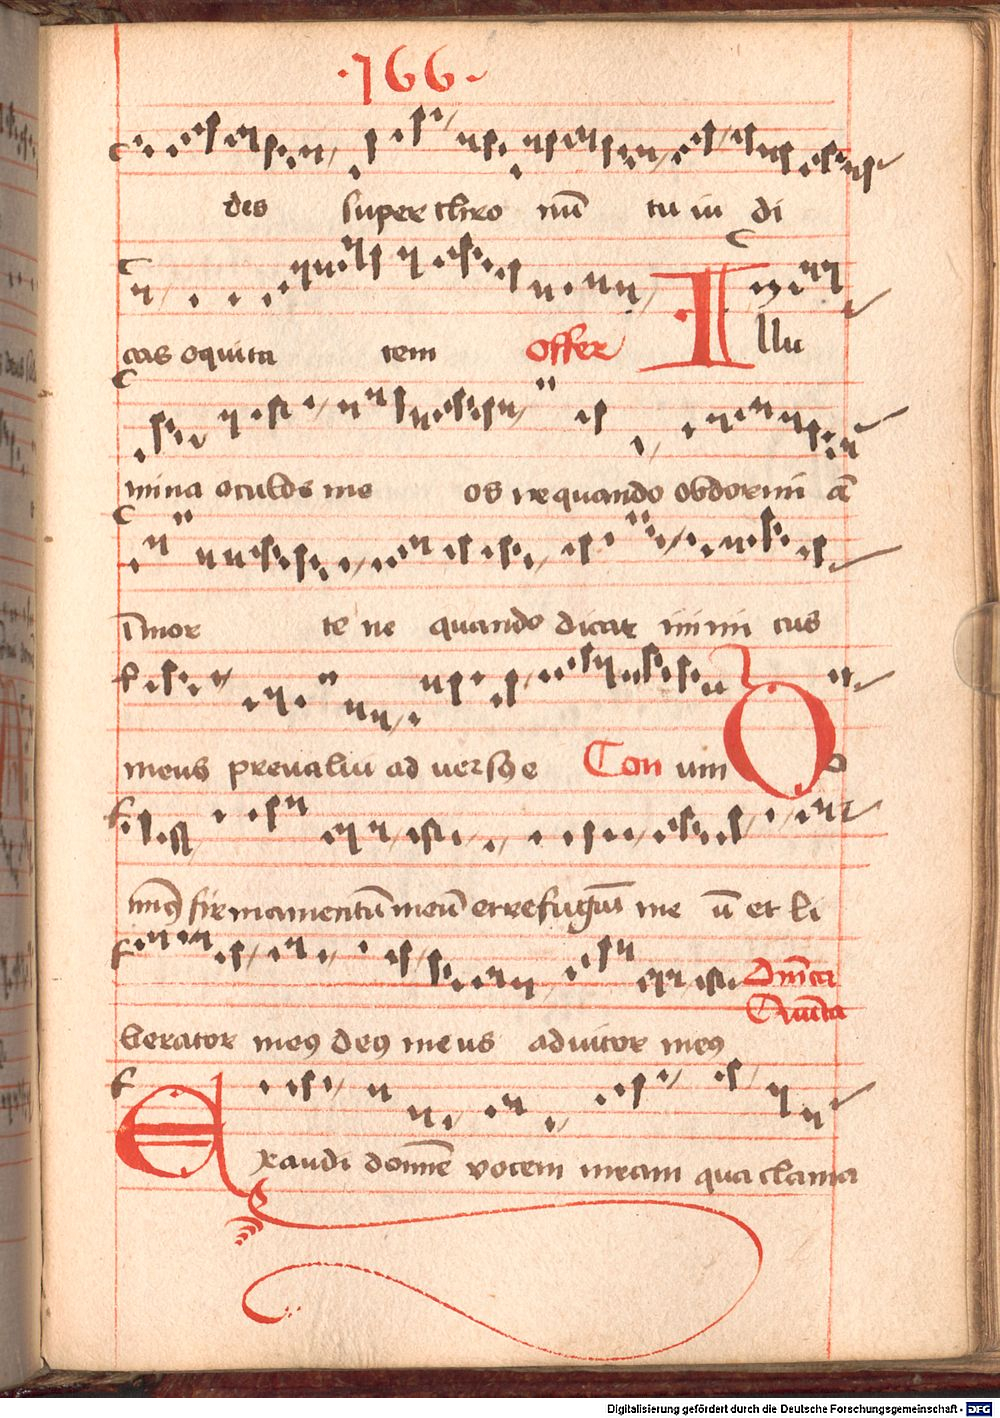 ·166·
des super thro nū tu iu di
cas equita tem offer Illu
mina oculos me os ne quando obdormi ā
ī mor te ne quando dicat inimi cus
meus preualui aduersꝫ e Com um Do
minꝰ firmamentū meū et refugiū me ū et li
berator meꝰ deꝰ meus adiutor meꝰ
Dn̄ica
Quīta
Exaudi domīe vocem meam qua clama
Digitalisierung gefördert durch die Deutsche Forschungsgemeinschaft - DFG